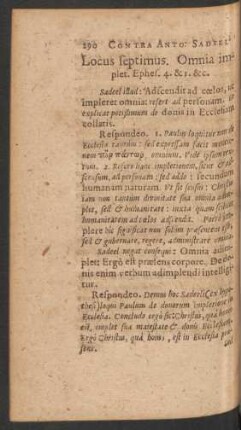 290 CONTRA ANTO: SADEEL
Locus septimus. Omnia im-
plet. Ephes. 4. & 1. &c.
Sadeel illud: Adscendit ad cœlos, ut
impleret omnia: refert ad personam. Et
explicat potissimum de donis in Ecclesiam
collatis.
Respondeo. 1. Paulus loquitur non de
Ecclesia tantùm: sed expressam facit
nem τῶν πάντων, omnium.
tum. 2. Refero hanc impletionem, sicut &
scensum, ad personam: sed addo: secundum
humanam naturam. Ut sit sensus: Chri-
stum non tantùm divinitate sua omnia im-
plet, sed & humanitate: quam
humanitatem ad cœlos adscendit.
plere hîc significat non solùm præsentem esse,
sed & gubernare, regere, administrare omnia.
Sadeel negat consequ: Omnia im-
plet: Ergò est præsens corpore. De do-
nis enim verbum adimplendi intelligi-
tur.
Respondeo. Demus hoc Sadeeli
loqui Paulum de donorum impletione in
Ecclesia. Concludo ergò sic: Christus, quâ homo
est, implet sua majestate & donis Ecclesiam.
Ergò Christus, quâ homo, est in Ecclesia præ-
sens.